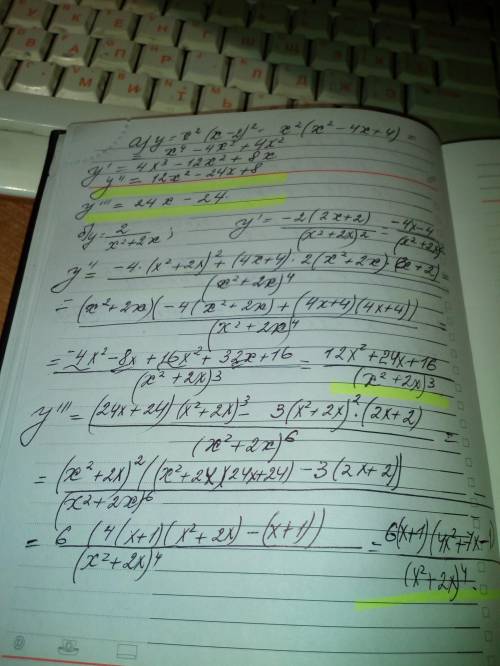 а) y = x² (x-2)² = x² (x² - 4x + 4) =
= x⁴ - 4x³ + 4x²
y' = 4x³ - 12x² + 8x
y'' = 12x² - 24x + 8
y''' = 24x - 24.
б) y = 2/(x² + 2x) ; y' = -2(2x+2)/(x²+2x)² = -4x-4/(x²+2x)²
y'' = -4·(x²+2x)² + (4x+4)·2(x²+2x)·(2x+2)/(x²+2x)⁴ =
= (x²+2x)(-4(x²+2x) + (4x+4)(4x+4))/(x²+2x)⁴ =
= -4x² - 8x + 16x² + 32x + 16/(x²+2x)³ = 12x² + 24x + 16/(x²+2x)³
y''' = (24x+24)(x²+2x)³ - 3(x²+2x)²·(2x+2)/(x²+2x)⁶ =
= (x²+2x)²((x²+2x)(24x+24) - 3(2x+2))/(x²+2x)⁶ =
= 6(4(x+1)(x²+2x) - (x+1))/(x²+2x)⁴ = 6(x+1)(4x²+7x-1)/(x²+2x)⁴.